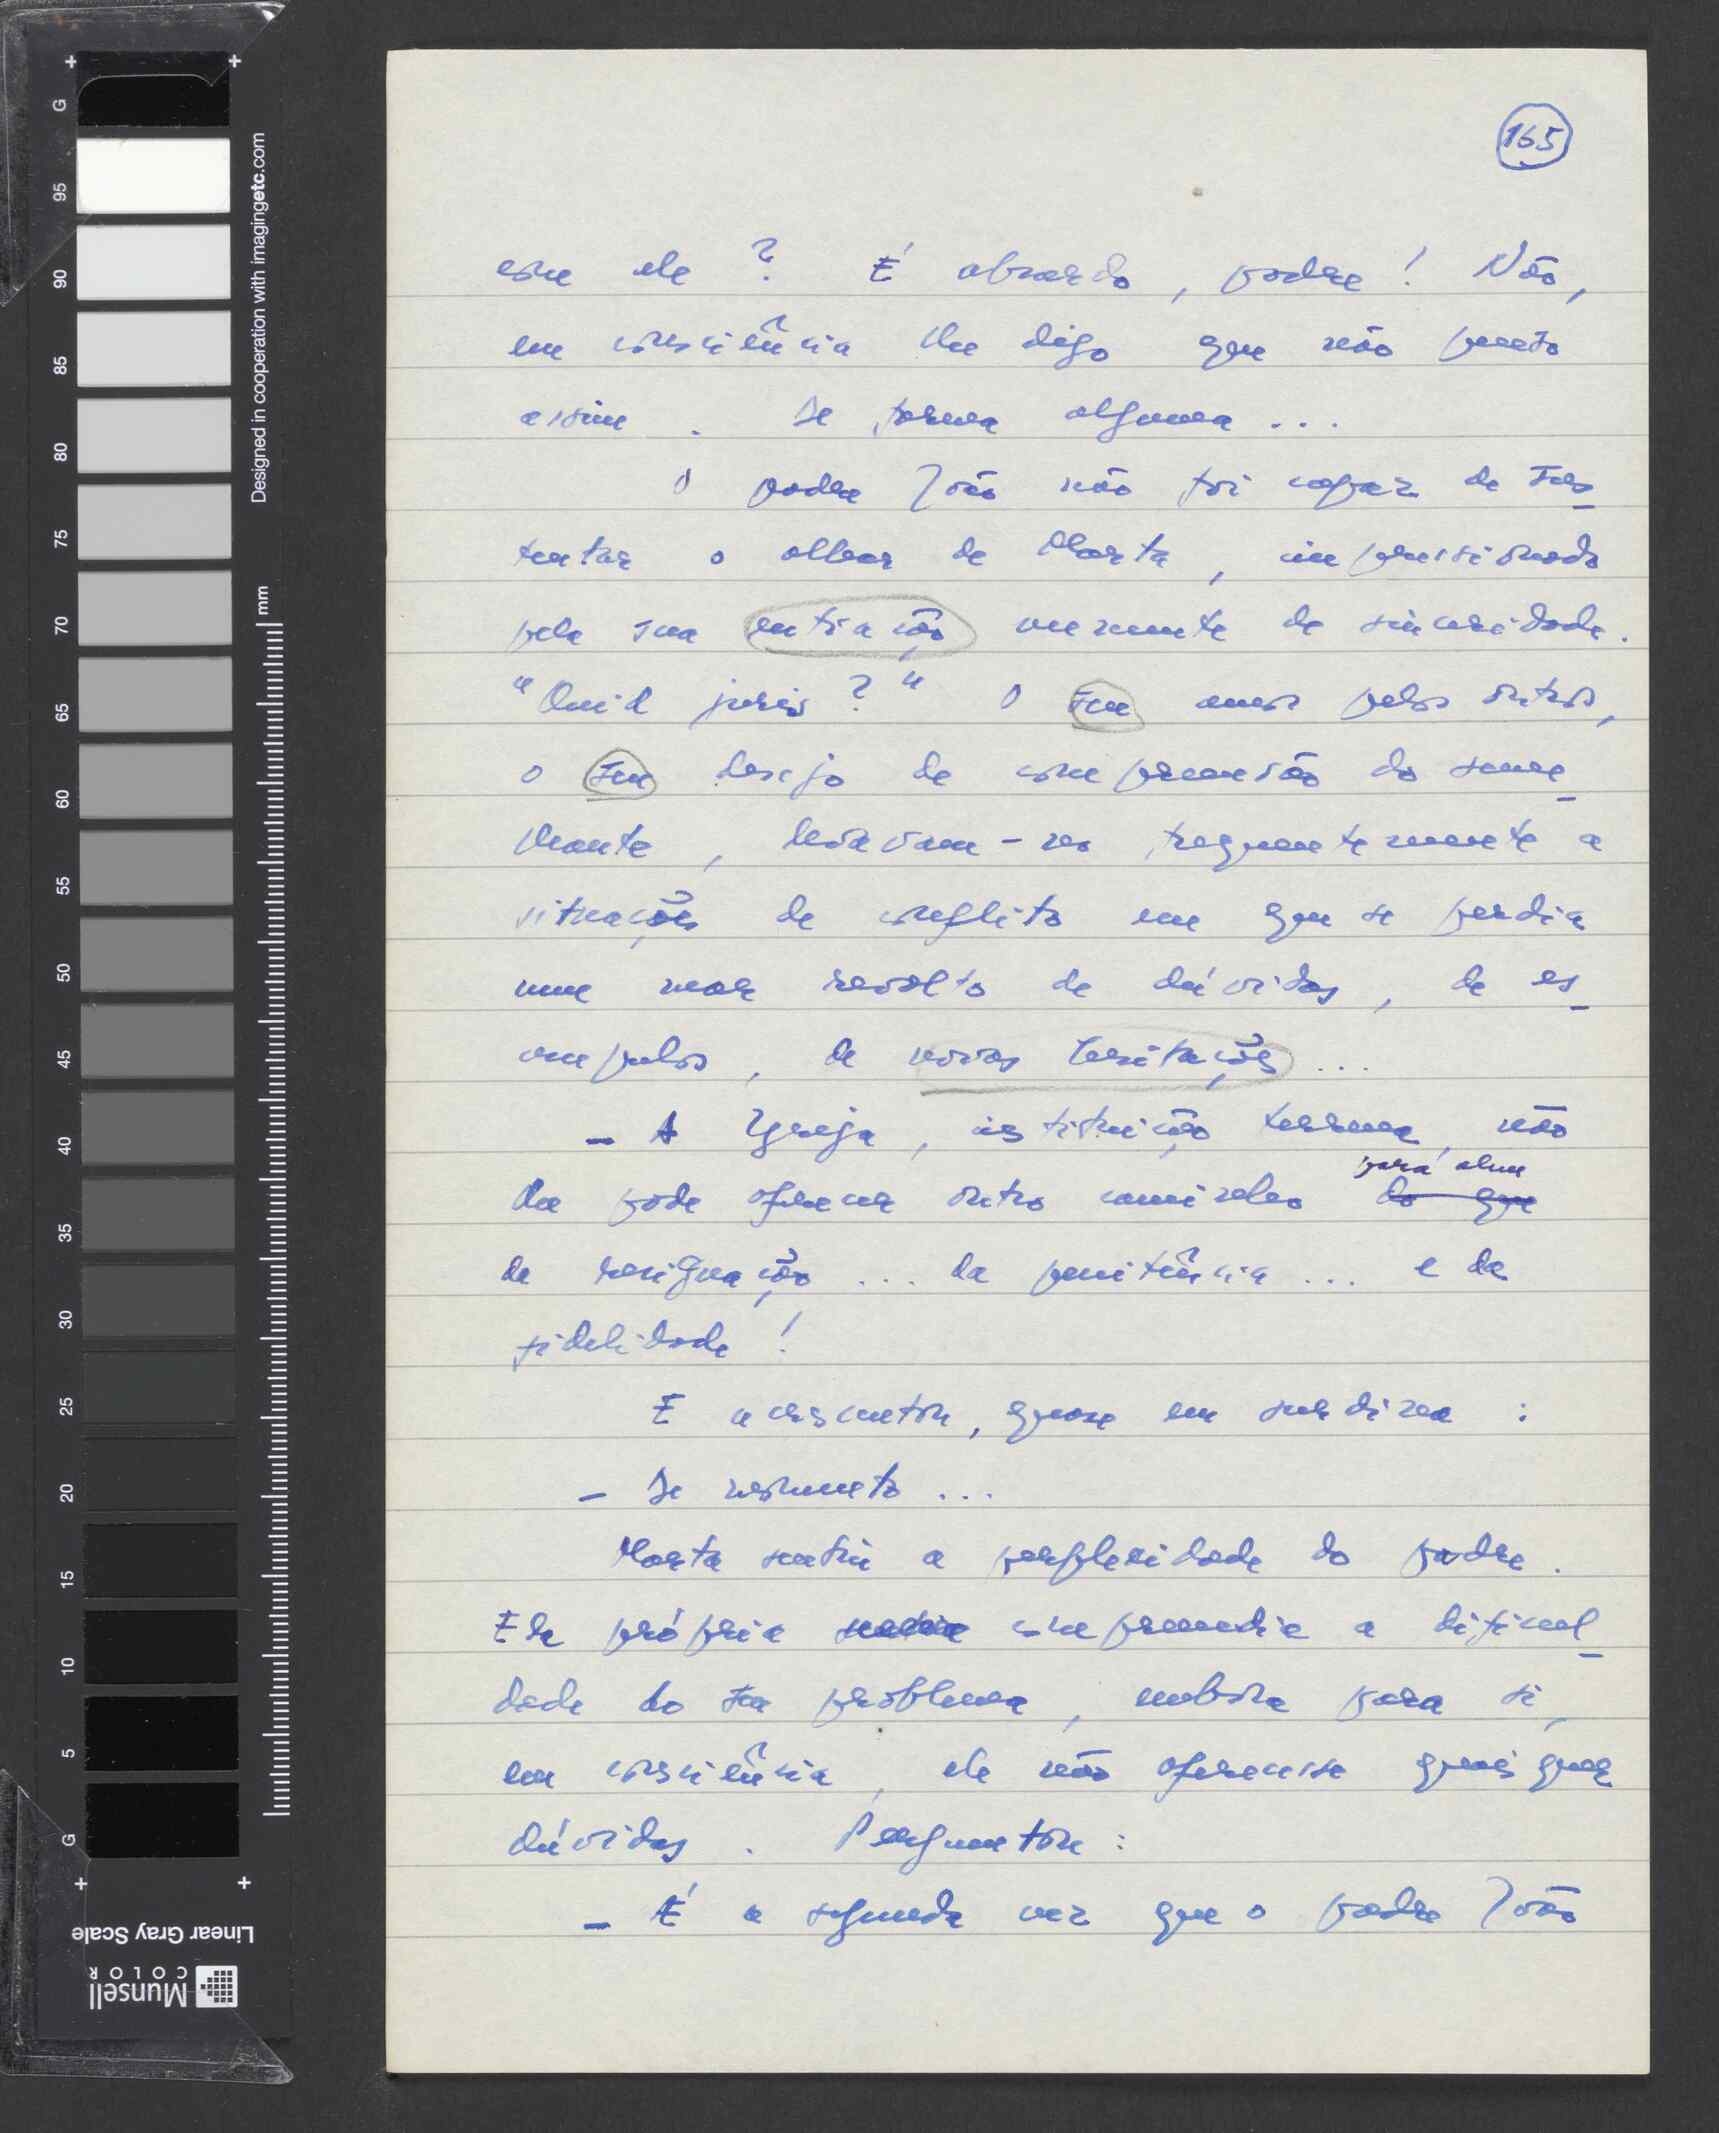 165
com ele? É absurdo, padre! Não,
em consciência lhe digo que não peco
assim. De forma alguma...
O padre João não foi capaz de sus-
tentar o olhar de Marta, impressionado
pela sua entoação veemente de sinceridade.
"Quid juris?" O seu amor pelos outros,
o seu desejo de compreensão do seme-
lhante, levavam-no frequentemente a
situações de conflito em que se perdia
num mar revolto de dúvidas, de es-
crúpulos, de novas hesitações...
- A Igreja, instituição terrena, não
lhe pode oferecer outro caminho para além
do que
da resignação... da penitência... e da
fidelidade!
E acrescentou, quase em surdina:
- De momento...
Marta sentiu a perplexidade do padre.
Ela própria compreendia a dificul-
dade do seu problema, embora para si,
em consciência, ele não oferecesse quaisquer
dúvidas. Perguntou:
- É a segunda vez que o padre João
G
95
90
85
80
75
70
65
60
55
50
45
40
35
30
25
20
15
10
5
G
Designed in cooperation with imagingetc.com
mm
Linear Gray Scale
Munsell
COLOR